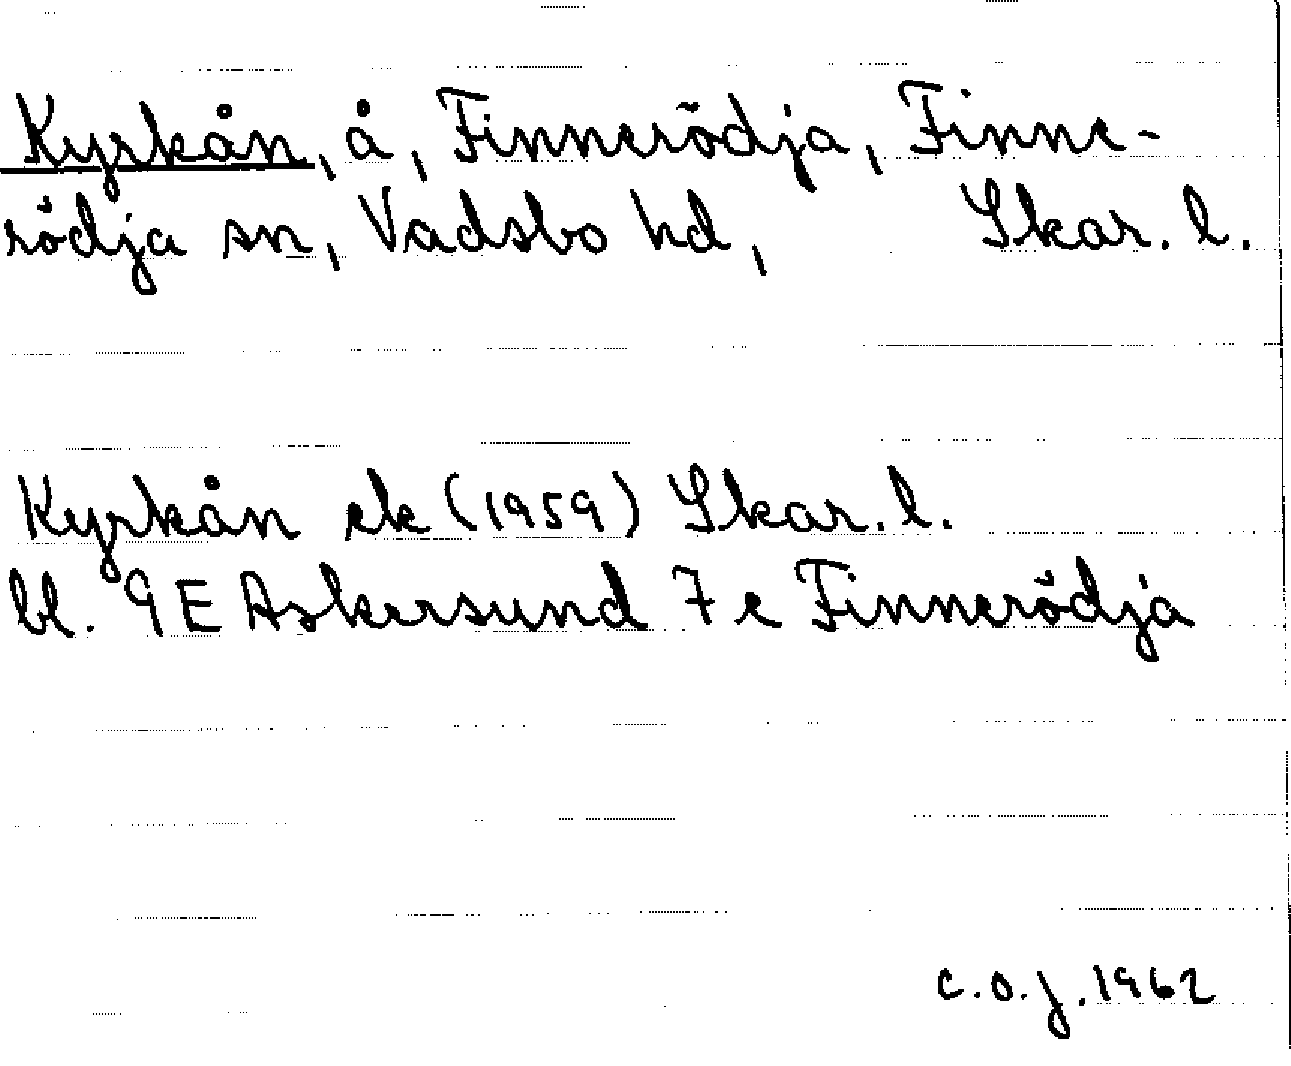 Kyrkån, å, Finnerödja, Finne-
rödja sn, Vadsbo hd, Skar. l.
Kyrkån ek (1959) Skar. l.
bl. 9E Askersund 7e Finnerödja
C.O.J. 1962